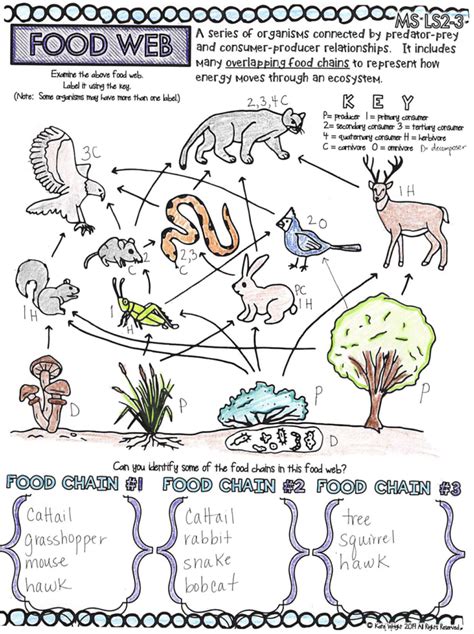 MS-LS2-3
FOOD WEB
A series of organisms connected by predator-prey
and consumer-producer relationships. It includes
many overlapping food chains to represent how
energy moves through an ecosystem.
Examine the above food web.
Label it using the key.
(Note: Some organisms may have more than one label.)
KEY
P= producer 1 = primary consumer
2= secondary consumer 3 = tertiary consumer
4 = quaternary consumer H = herbivore
C = carnivore O = omnivore D= decomposer
2,3,4 C
3C
1H
2O
C 2
2,3
C
1H
1H
PC
1H
D
P
P
P
D
Can you identify some of the food chains in this food web?
FOOD CHAIN #1 FOOD CHAIN #2 FOOD CHAIN #3
Cattail
grasshopper
mouse
hawk
Cattail
rabbit
snake
bobcat
tree
squirrel
hawk
2019 All Rights Reserved.